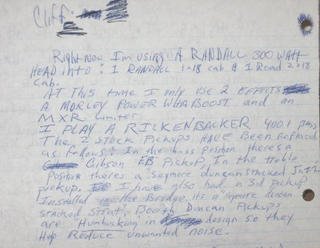 Cliff:
Right now I'm using A RANDALL 300 WATT
HEAD into: 1 RANDALL 1-18 cab & 1 Road 2x15
cab.
AT This time I only use 2 EFFECTS
A MORLEY POWER WHA BOOST and an
MXR Limiter
I PLAY A RICKENBACKER 4001 Bass,
The 2 stock Pickups HAVE Been Replaced
as follows: In the bass Position theres a
Gibson EB Pickup, In the treble
Position theres a Seymore duncan stacked Jazz
pickup. I have also had a 3rd pickup
Installed the Bridge. Its a Seymore duncan
stacked strat. Both Duncan Pickups
are Humbucking in design so they
Help REDUCE unwanted noise.